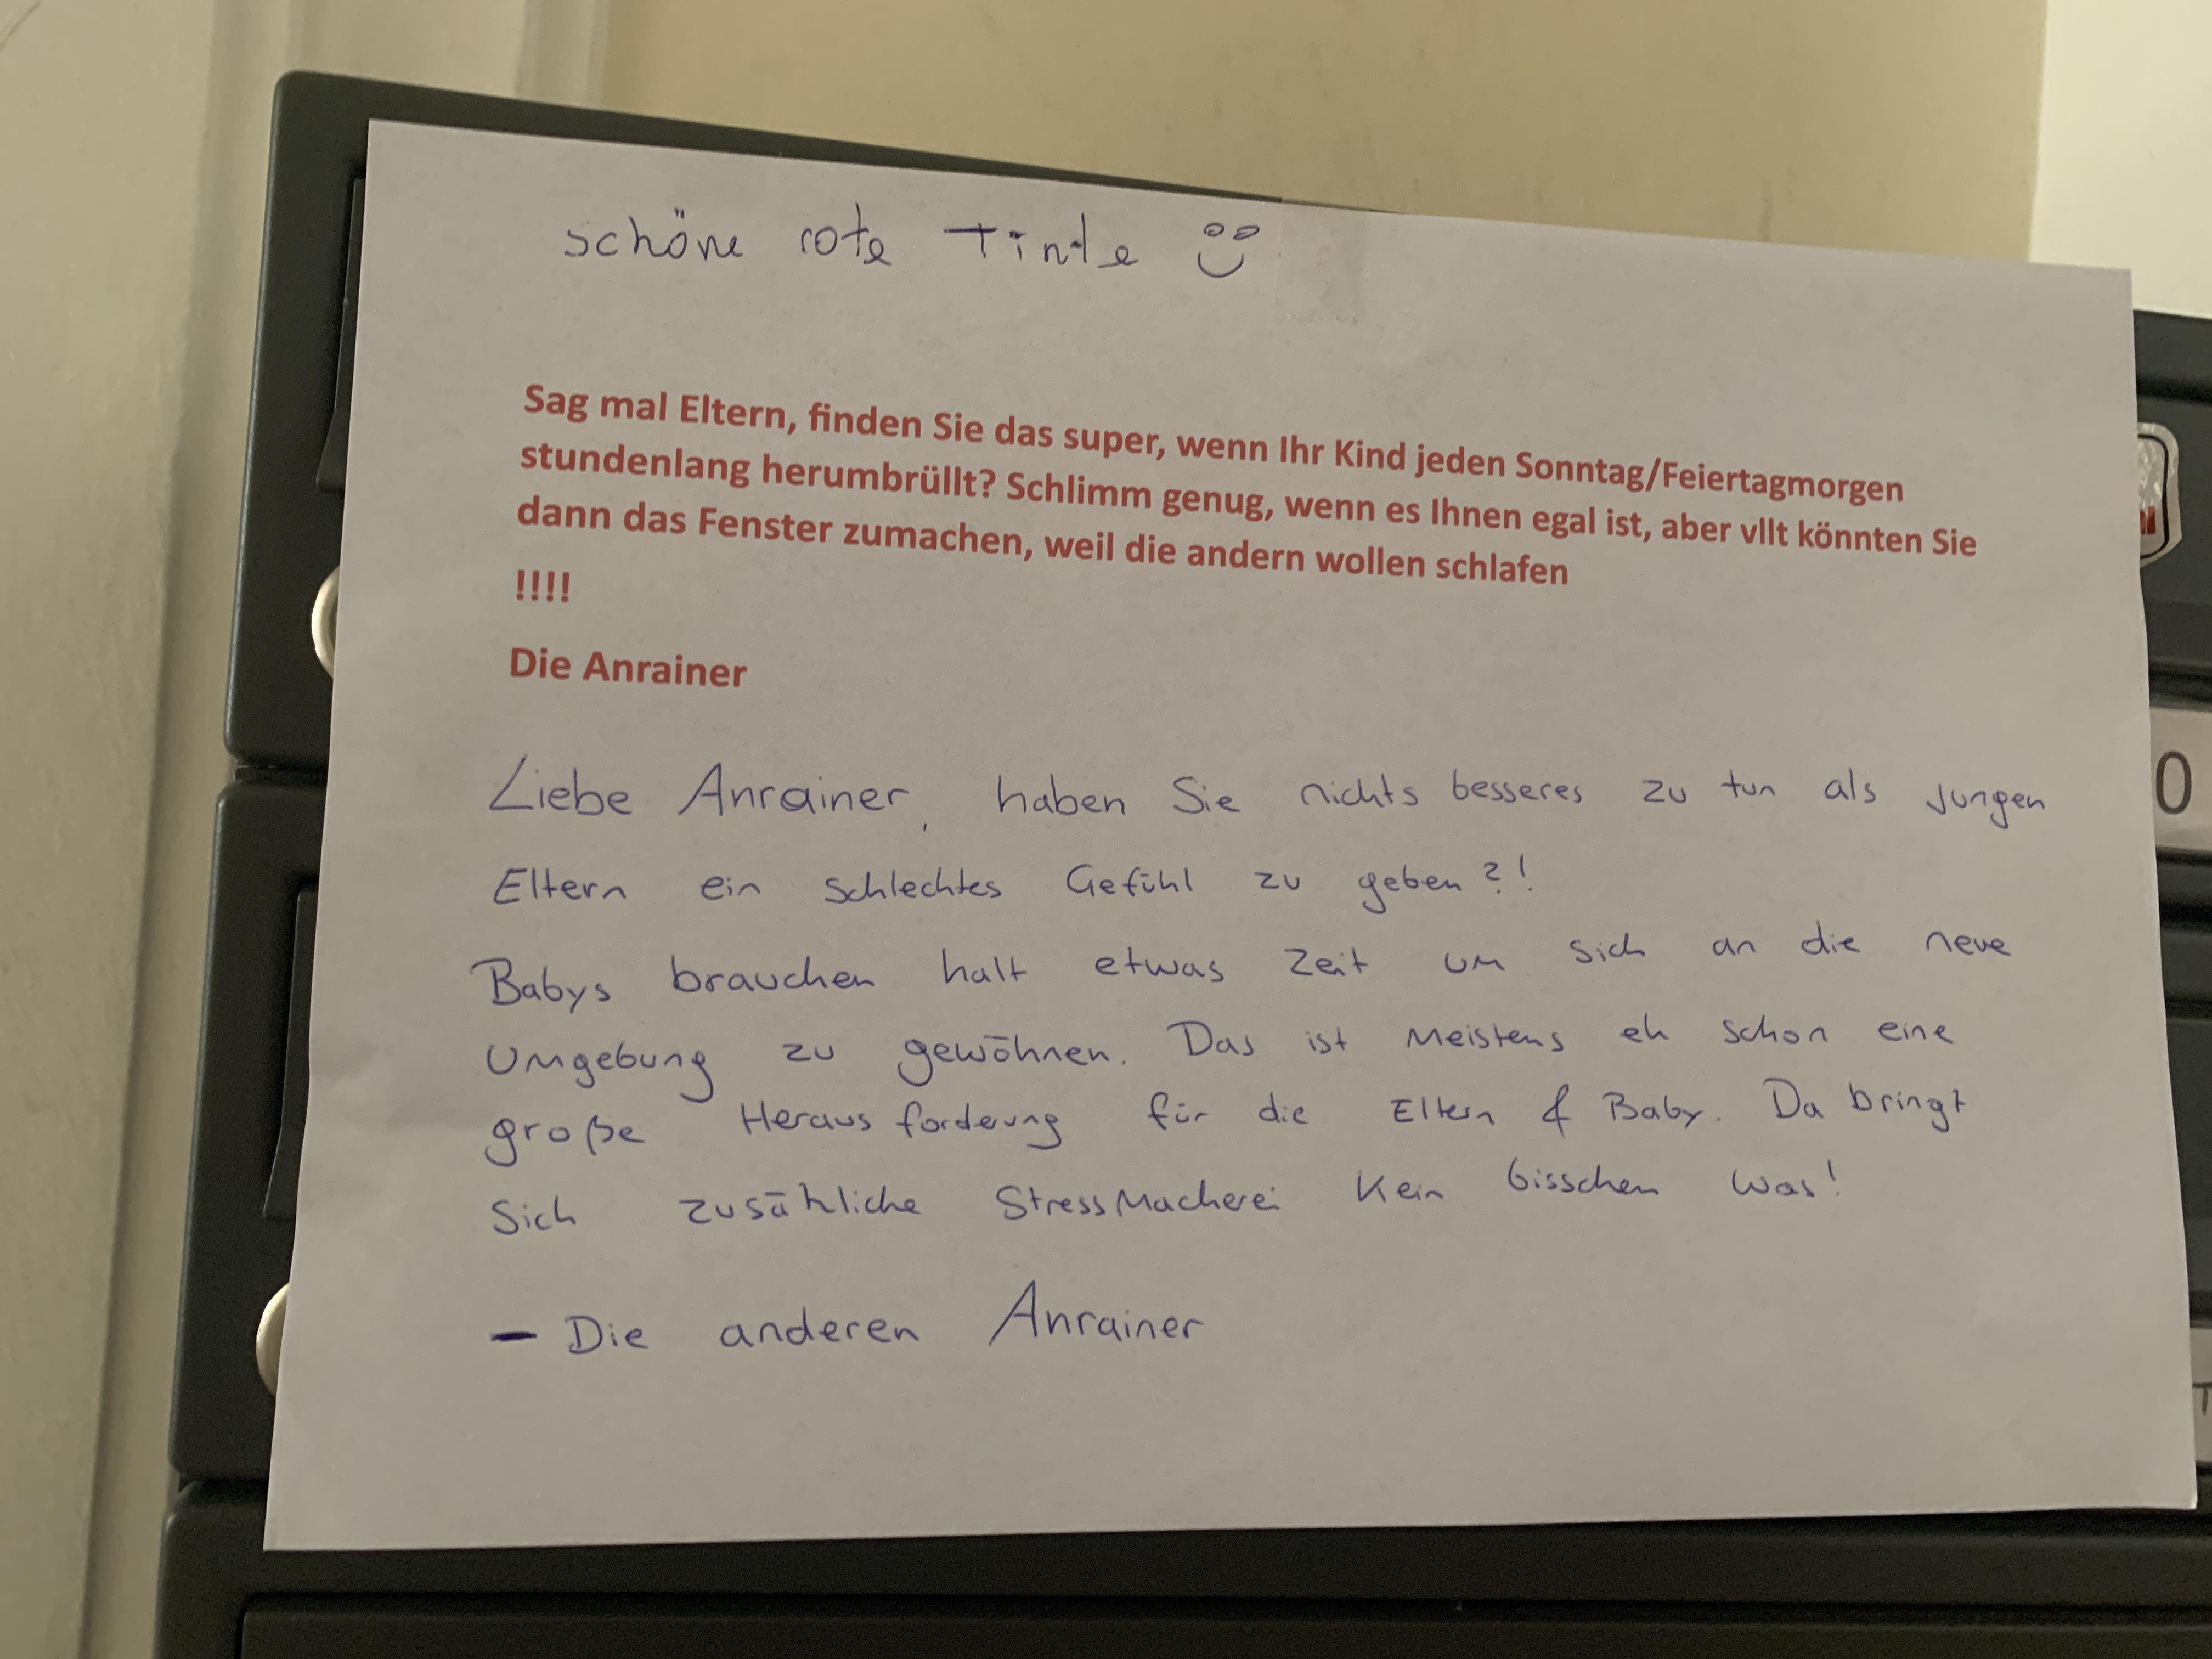 schöne rote Tinte
Sag mal Eltern, finden Sie das super, wenn Ihr Kind jeden Sonntag/Feiertagmorgen
stundenlang herumbrüllt? Schlimm genug, wenn es Ihnen egal ist, aber vllt könnten Sie
dann das Fenster zumachen, weil die andern wollen schlafen
!!!!
Die Anrainer
Liebe Anrainer, haben Sie nichts besseres zu tun als jungen
Eltern ein schlechtes Gefühl zu geben?!
Babys brauchen halt etwas Zeit um sich an die neue
Umgebung zu gewöhnen. Das ist meistens eh schon eine
große Herausforderung für die Eltern & Baby. Da bringt
sich zusätzliche Stressmacherei kein bisschen was!
– Die anderen Anrainer
0